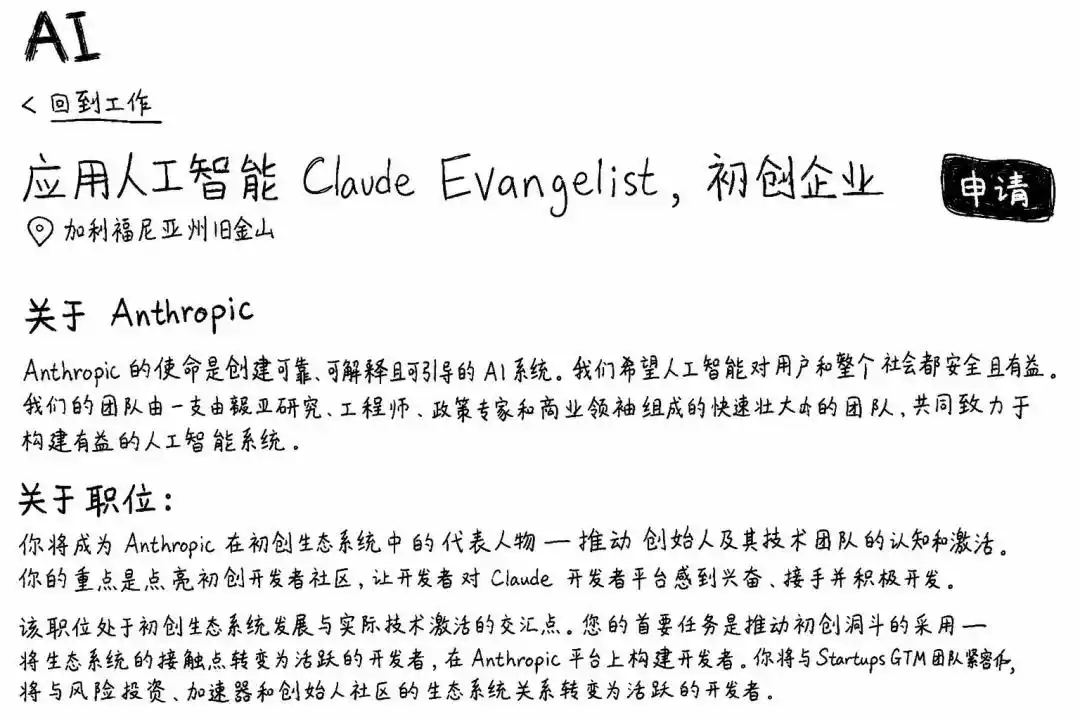 AI
< 回到工作
应用人工智能 Claude Evangelist, 初创企业
申请
加利福尼亚州旧金山
关于 Anthropic
Anthropic 的使命是创建可靠、可解释且可引导的 AI 系统。我们希望人工智能对用户和整个社会都安全且有益。
我们的团队由一支由 研究、工程师、政策专家和商业领袖组成的快速壮大 的团队,共同致力于
构建有益的人工智能系统。
关于职位:
你将成为 Anthropic 在初创生态系统中的代表人物 — 推动 创始人及其技术团队的认知和激活。
你的重点是点亮初创开发者社区,让开发者对 Claude 开发者平台感到兴奋、接手并积极开发。
该职位处于初创生态系统发展与实际技术激活的交汇点。您的首要任务是推动初创漏斗的采用 —
将生态系统的接触点转变为活跃的开发者,在 Anthropic 平台上构建开发者。你将与 Startups GTM 团队紧密
将与风险投资、加速器和创始人社区的生态系统关系转变为活跃的开发者。